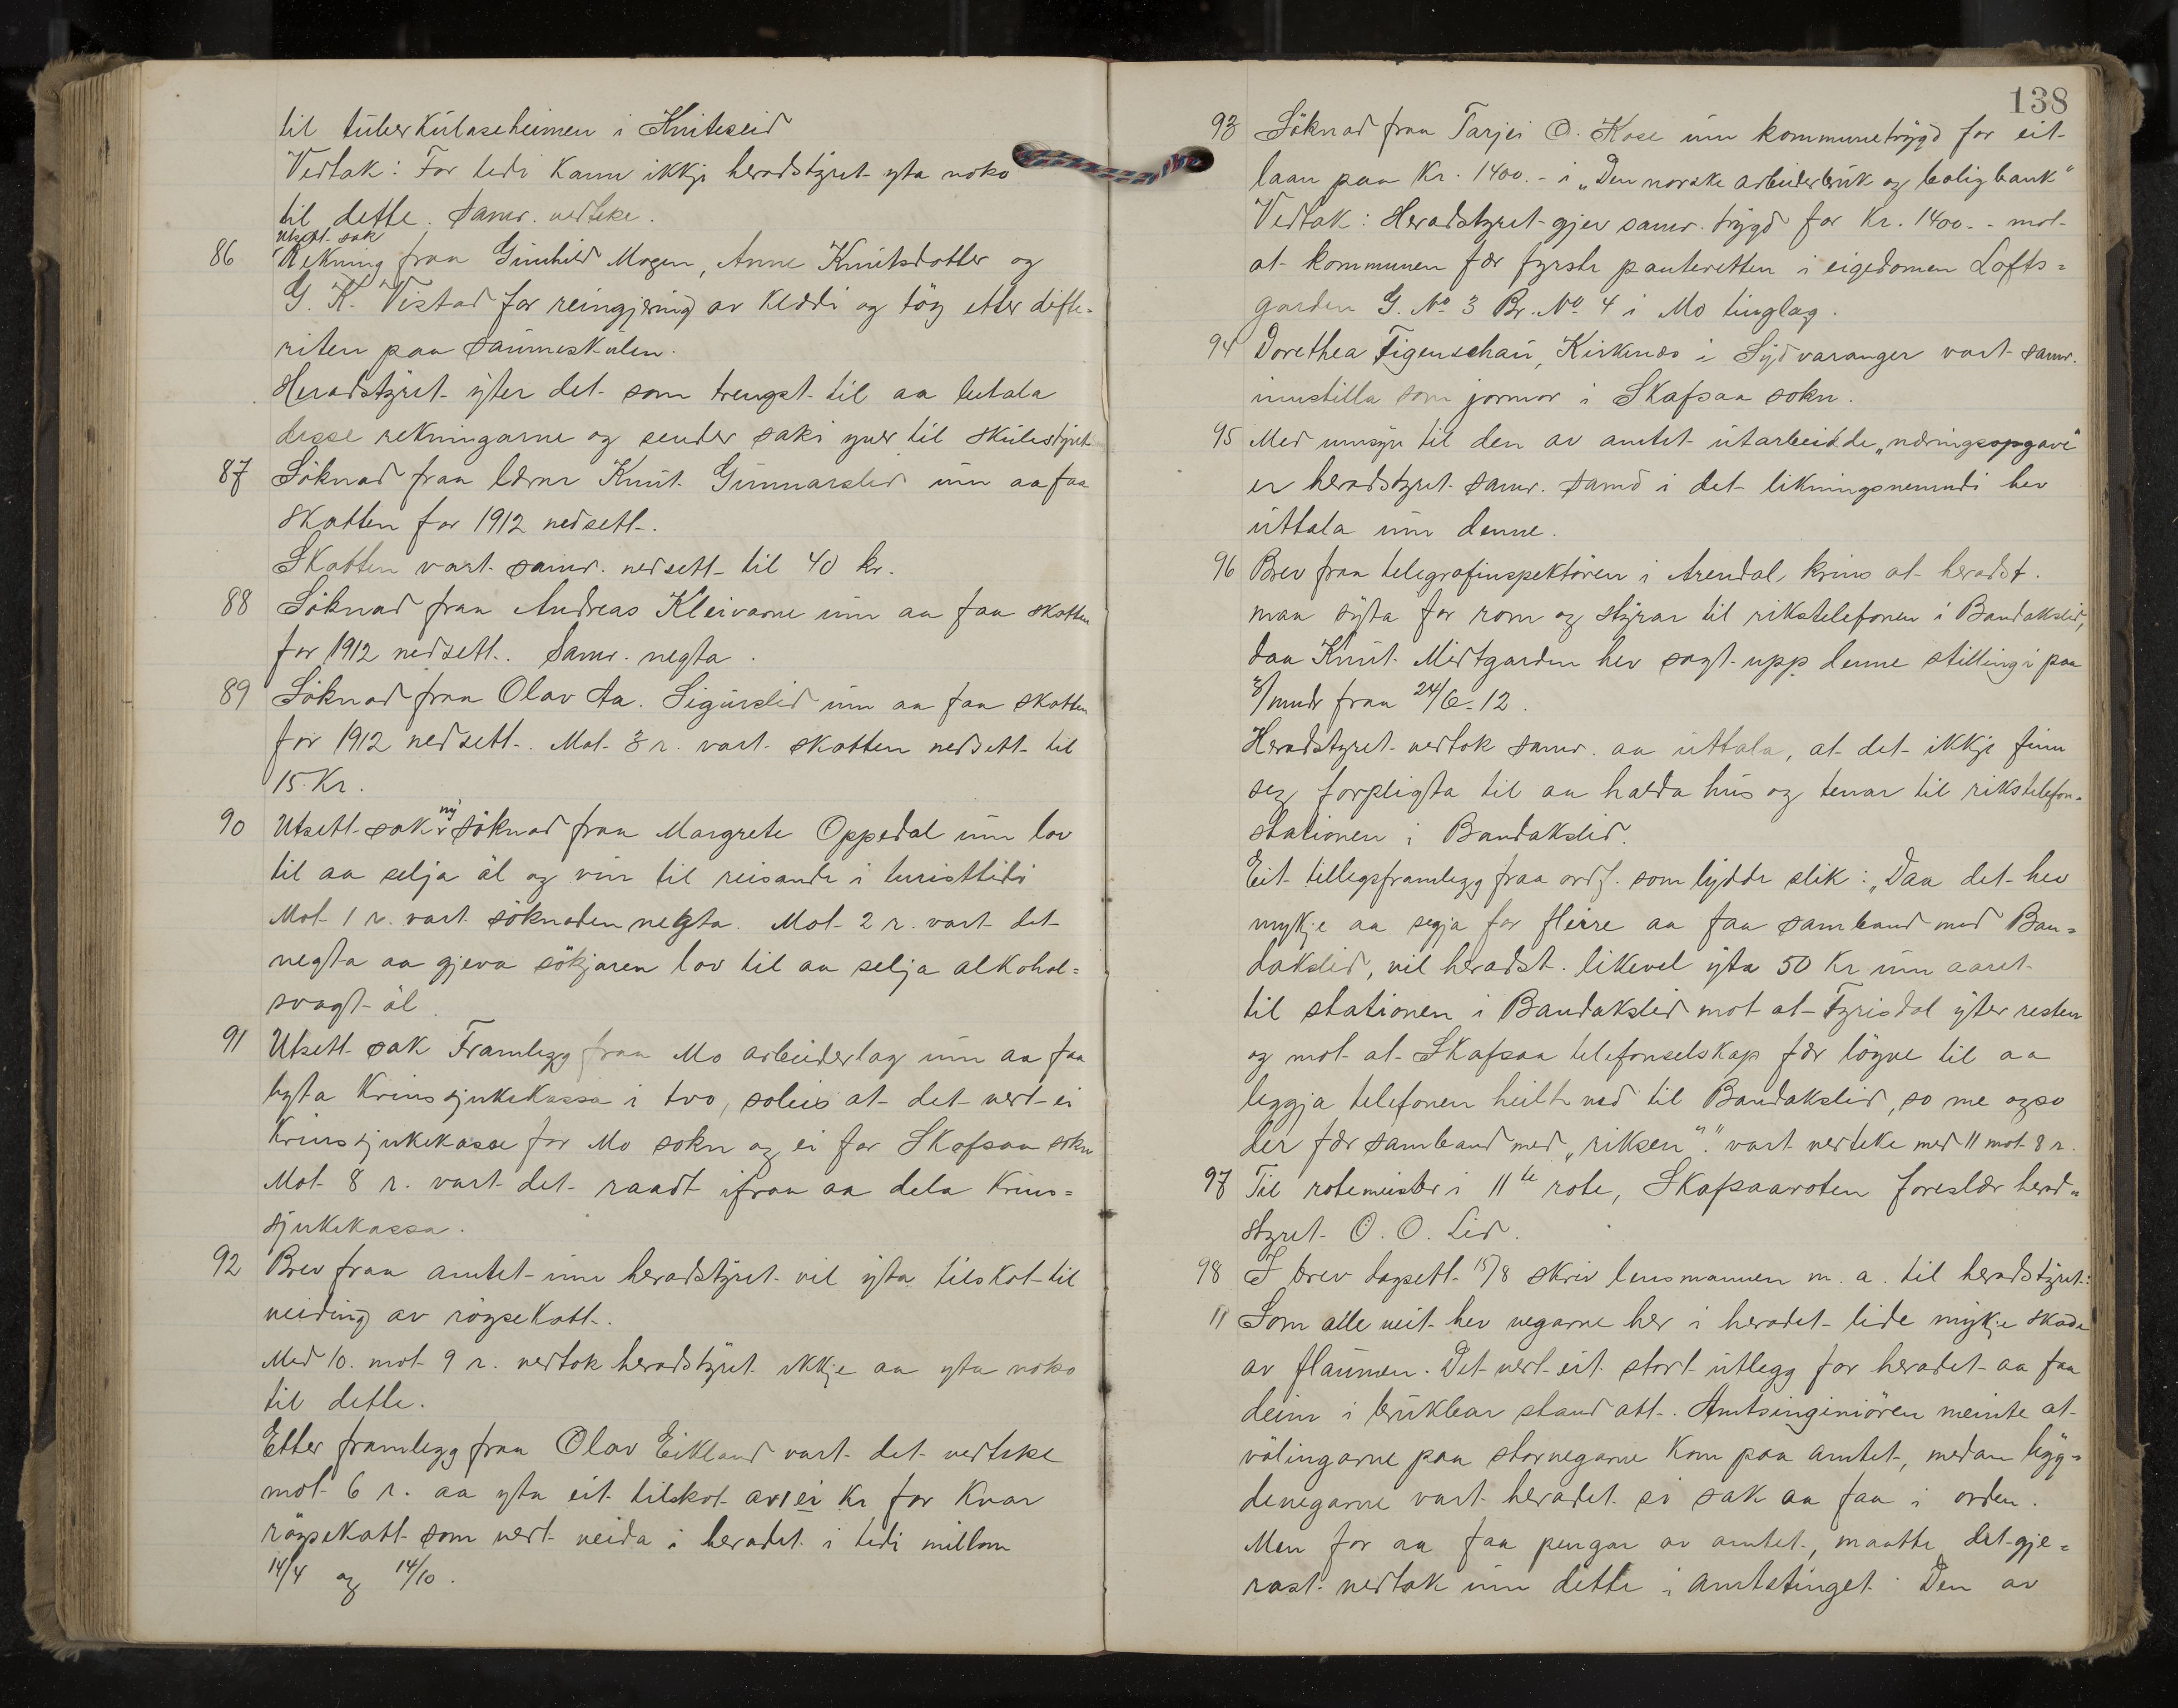 til tuberkulaseheimen i Kviteseid
Vedtak: For tidi kann ikkje heradstyret yta noko
til dette. Samr. vedteke.
Utsett sak
86 Rekning fraa Gunhild Mogen, Anne Knutsdotter og
G. K. Vistad for reingjering av klædi og töy etter difte-
riten paa Saumeskulen.
Heradstyret yter det som trengst til aa betala
desse rekningarne og sender saki yver til skulestyret
87 Söknad fraa lærar Knut Gunnarslid um aa faa
skatten for 1912 nedsett.
Skatten vart samr. nedsett til 40 kr.
88 Söknad fraa Andreas Kleivarne um aa faa skatten
for 1912 nedsett. Samr. negta.
89 Söknad fraa Olav Aa. Sigurslid um aa faa skatten
for 1912 nedsett. Mot 3 r. vart skatten nedsett til
15 Kr.
90 Utsett sak ny söknad fraa Margrete Oppedal um lov
til aa selja öl og vin til reisande i turisttidi
Mot 1 r. vart söknaden negta. Mot 2 r. vart det
negta aa gjeva sökjaren lov til aa selja alkohol=
svagt öl.
91 Utsett sak Framlegg fraa Mo arbeidarlag um aa faa
byta Krinssjukekassa i tvo, soleis at det vert ei
Krinssjukekasse for Mo sokn og ei for Skafsaa sokn
Mot 8 r. vart det raadt ifraa aa dela Krins=
sjukekassa.
92 Brev fraa amtet um heradstyret vil yta tilskot til
veiding av röysekatt.
Med 10. mot 9 r. vedtok heradstyret ikkje aa yta noko
til dette.
Etter framlegg fraa Olav Eikland vart det vedteke
mot 6 r. aa yta eit tilskot av 1 ei kr for kvar
röysekatt som vert veida i heradet i tidi millom
14/4 og 14/10.
138
93 Söknad fraa Tarjei O. Kose um kommunetrygd for eit
laan paa Kr. 1400.- i "Den norske arbeiderbruk og boligbank"
Vedtak: Heradstyret gjev samr. trygd for Kr. 1400.- mot
at kommunen fær fyrste panteretten i eigedomen Lofts=
garden G. No 3 Br. No 4 i Mo tinglag.
94 Dorethea Figenschau, Kirkenæs i Sydvaranger vart samr.
innstilla som jormor i Skafsaa sokn.
95 Med umsyn til den av amtet utarbeidde "næringsopgave"
er heradstyret samr. samd i det likningsnemndi hev
uttala um denne.
96 Brev fraa telegrafinspektören i Arendal, krins at heradst.
maa syta for rom og styrar til rikstelefonen i Bandakslid,
daa Knut Midtgarden hev sagt upp denne stillingi paa
3/mndr fraa 24/6-12.
Heradstyret vedtok samr. aa uttala, at det ikkje finn
seg forpligta til aa halda hus og tenar til rikstelefon-
stationen i Bandakslid.
Eit tillegsframlegg fraa ordf. som lydde slik: "Daa det hev
mykje aa segja for fleire aa faa samband med Ban=
dakslid, vil heradst. likevel yta 50 Kr um aaret
til stationen i Bandakslid mot at Fyrisdal yter resten
og mot at Skafsaa telefonselskap fær löyve til aa
leggja telefonen heilt ned til Bandakslid, so me ogso
der fær samband med "riksen"." vart vedteke med 11 mot 8 r.
97 Til rotemeister i 11te rote, Skafsaaroten foreslær herad=
styret O. O. Lid.
98 I brev dagsett 15/8 skriv lensmannen m. a. til heradstyret:
" Som alle veit hev vegarne her i heradet lide mykje skade
av flaumen. Det vert eit stort utlegg for heradet aa faa
deim i brukbar stand att. Amtsingeniören meinte at
völingarne paa storvegarne kom paa amtet, medan byg=
devegarne vart heradet si sak aa faa i orden.
Men for aa faa pengar av amtet, maatte det gje=
rast vedtak um dette i amtstinget. Den av